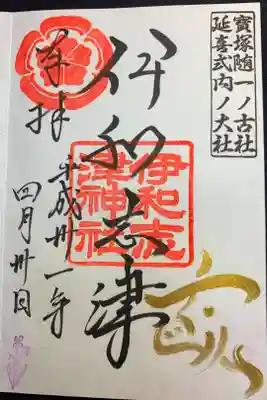 寳塚随一ノ古社
延喜式内ノ大社
伊和志津
伊和志
津神社
奉拝
平成卅一年
四月卅日